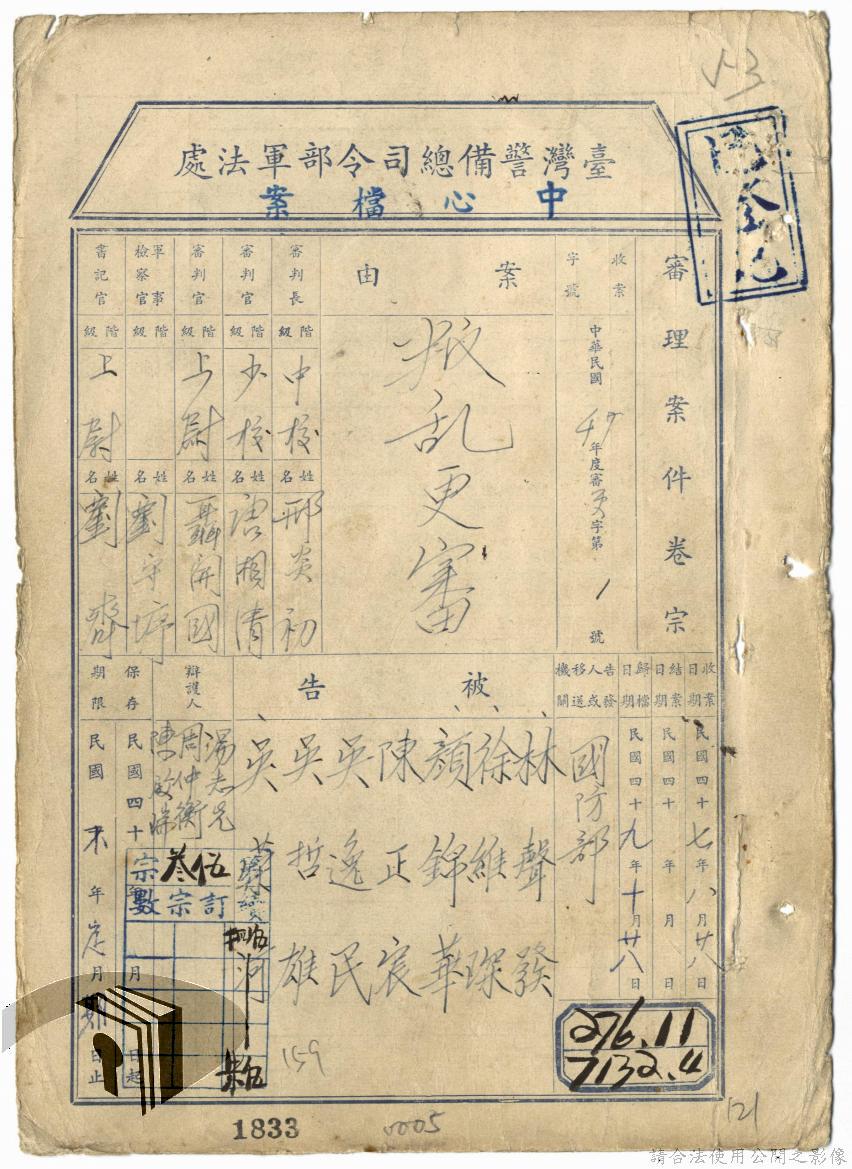 53
臺灣警備總司令部軍法處
中心檔案
審理案件卷宗
收案字號
中華民國 47 年度審更字第 1 號
案由
叛乱更審
審判長 階級 中校 姓名 邢炎初
審判官 階級 少校 姓名 唐湘清
審判官 階級 上尉 姓名 聶開國
軍事檢察官 階級 姓名 劉守
書記官 階級 上尉 姓名 劉
收案日期 民國四十七年八月廿八日
結案日期 民國四十 年 月 日
歸檔日期 民國四十九年十月廿八日
告發人或移送機關 國防部
被告
林聲發
徐維琛
顏錦華
陳正宸
吳逸民
吳哲雄
吳河
辯護人
湯志先
周仲衡
陳
保存期限
民國四十 年 月 日起
民國 未 年 定 月 期 日止
宗數
訂宗
叁伍
276.11
7132.4
159
1833
0005
121
請合法使用公開之影像